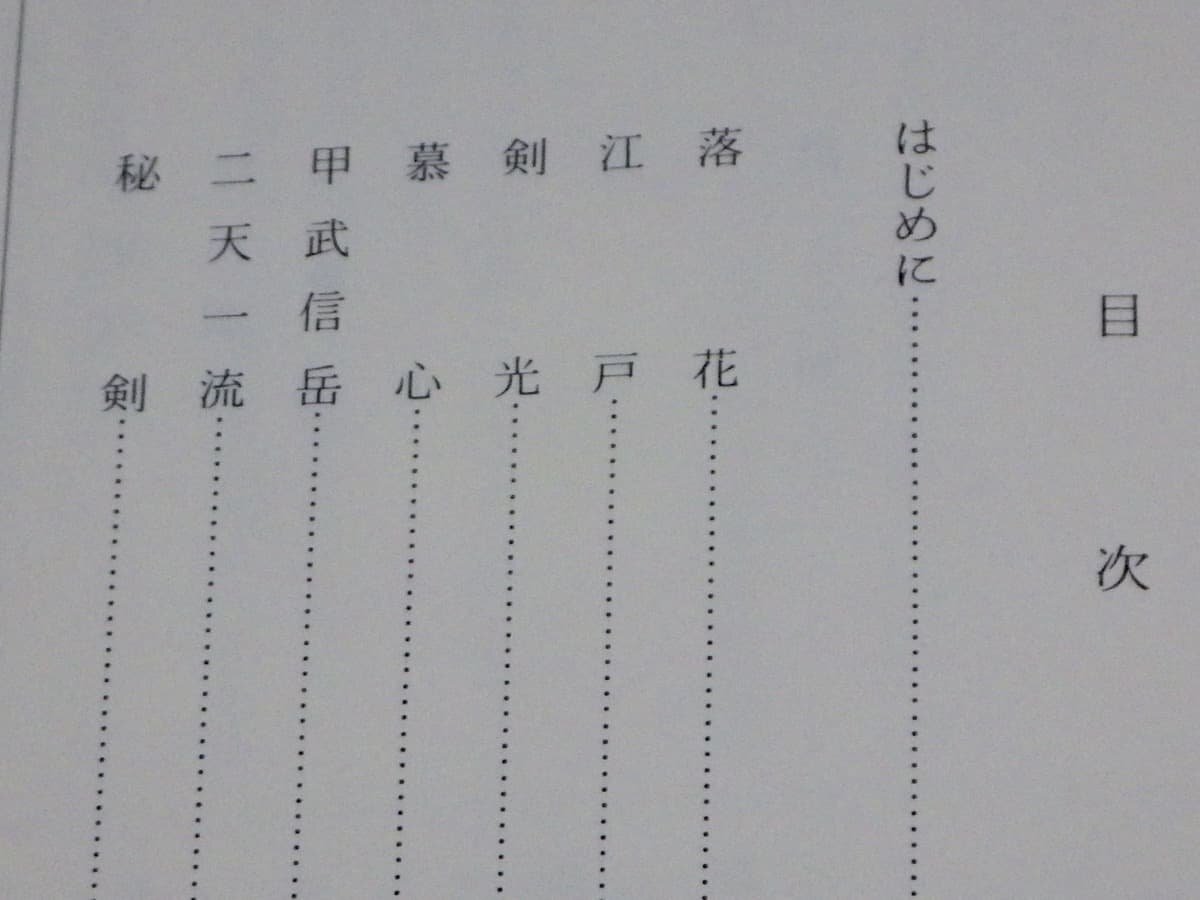 目次
はじめに……………………………
落花……………………………
江戸……………………………
剣光……………………………
慕心……………………………
甲武信岳……………………………
二天一流……………………………
秘剣……………………………